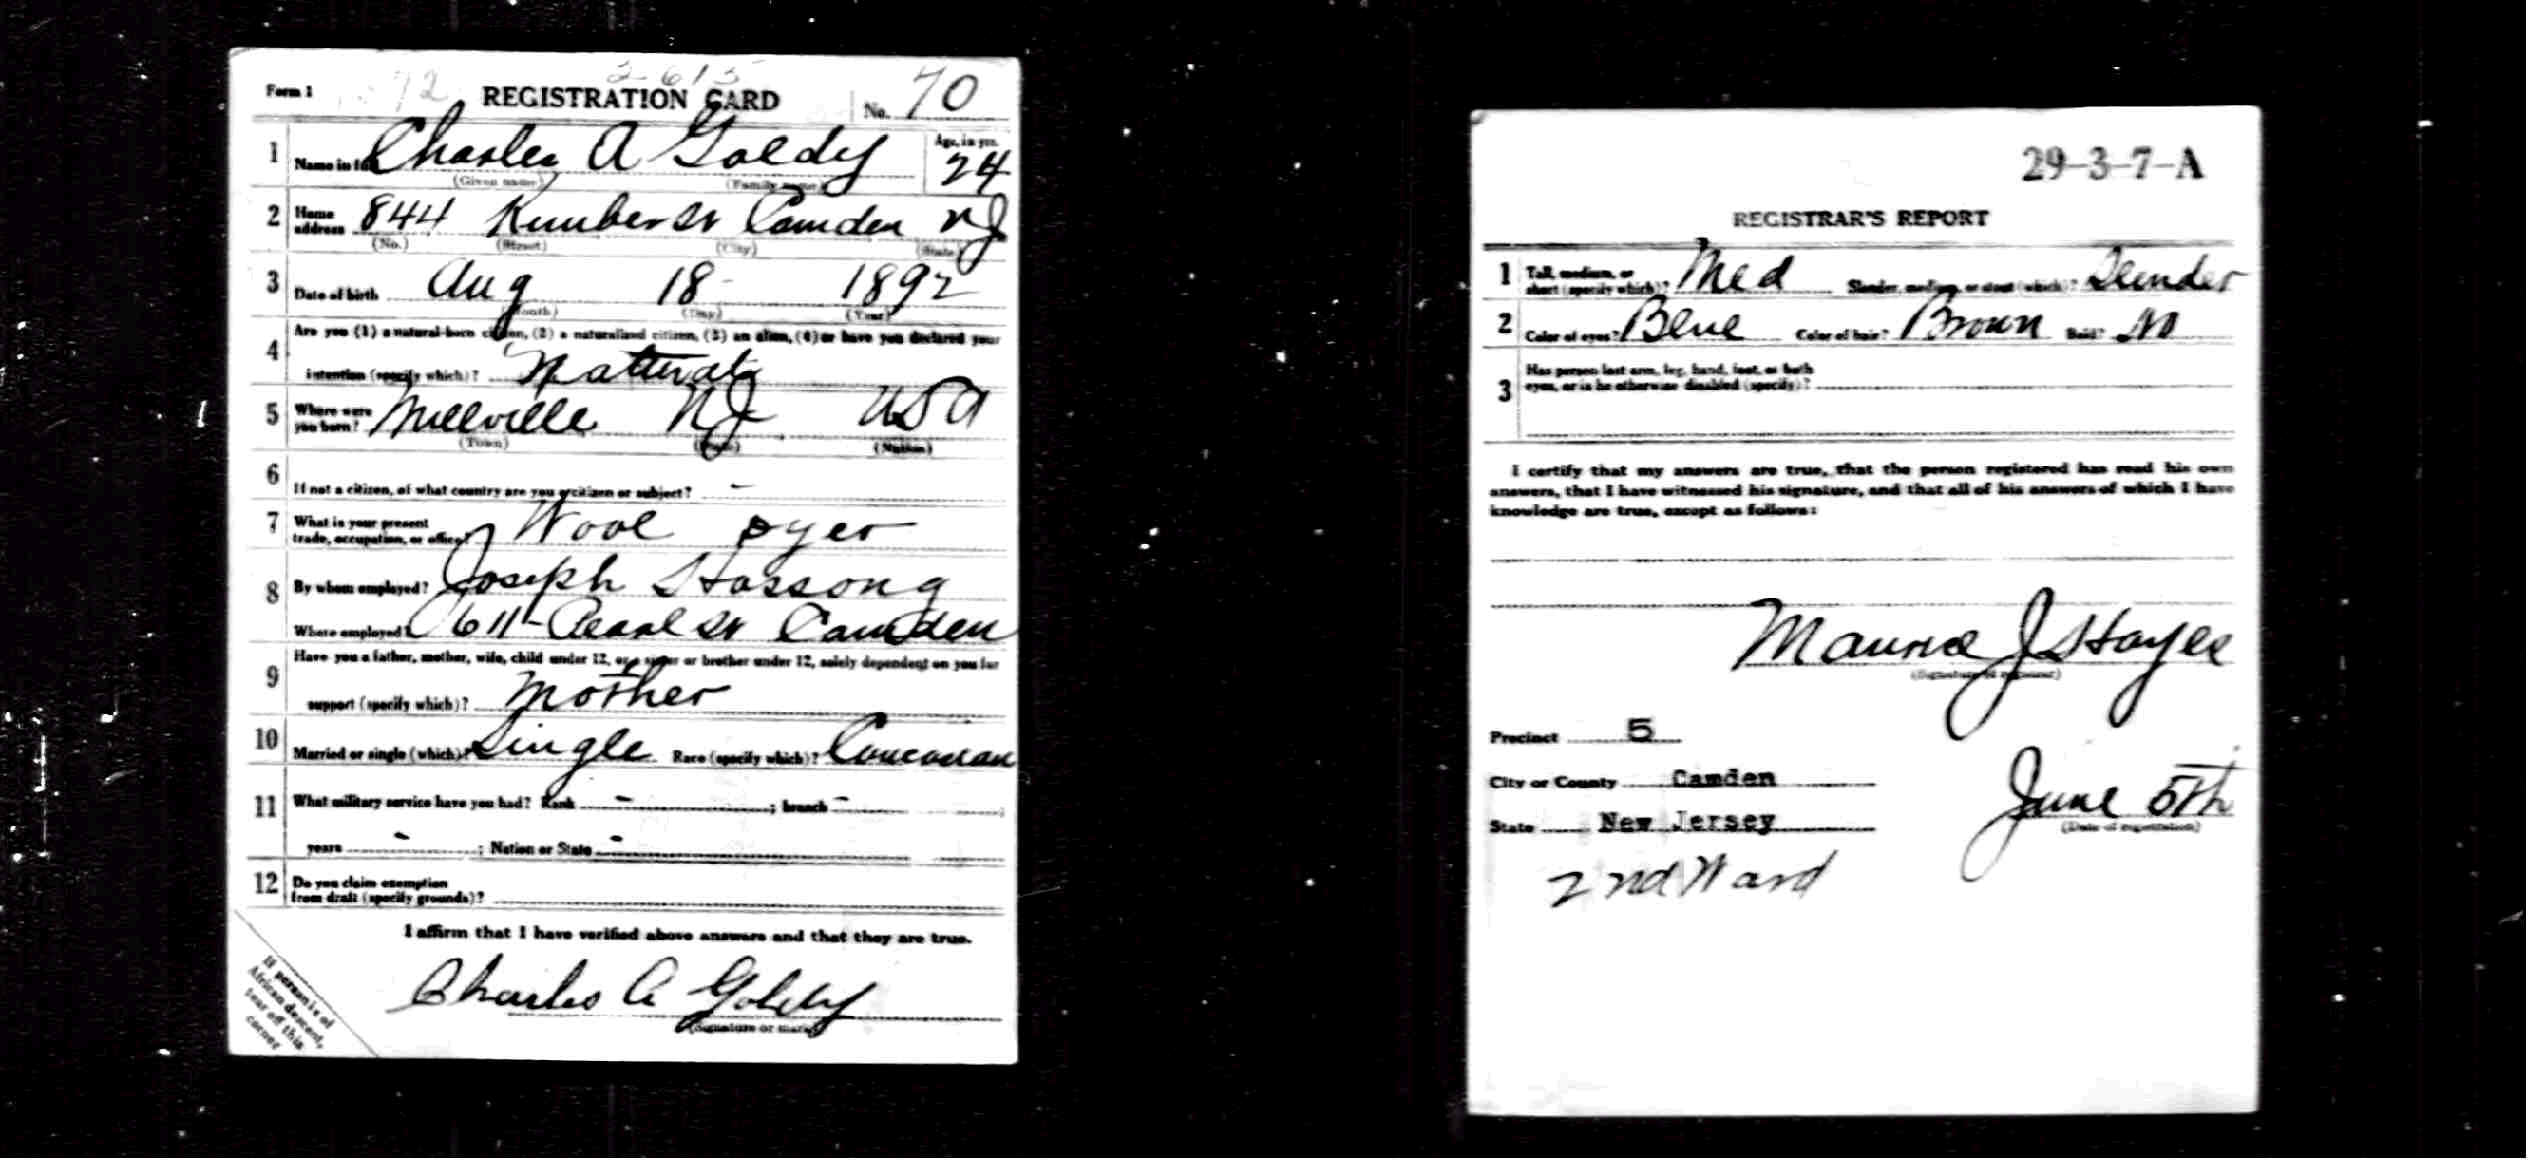 Form 1
2615
72
REGISTRATION CARD
No. 70
1 Name in full Charles A Goldy
Age, in yrs. 24
(Given name) (Family name)
2 Home address 844 Kimber St Camden NJ
(No.) (Street) (City) (State)
3 Date of birth Aug 18- 1892
(Month) (Day) (Year)
4 Are you (1) a natural-born citizen, (2) a naturalized citizen, (3) an alien, (4) or have you declared your
intention (specify which)? Natural
5 Where were you born? Millville NJ USA
(Town) (State) (Nation)
6 If not a citizen, of what country are you a citizen or subject? -
7 What is your present trade, occupation, or office? Wool Dyer
8 By whom employed? Joseph Hassong
Where employed? 611- Pearl St Camden
9 Have you a father, mother, wife, child under 12, or a sister or brother under 12, solely dependent on you for
support (specify which)? Mother
10 Married or single (which)? Single Race (specify which)? Caucasian
11 What military service have you had? Rank - ; branch -
years - ; Nation or State -
12 Do you claim exemption
from draft (specify grounds)?
I affirm that I have verified above answers and that they are true.
Charles A Goldy
(Signature or mark)
If person is of
African descent,
tear off this
corner
29-3-7-A
REGISTRAR'S REPORT
1 Tall, medium, or short (specify which)? Med Slender, medium, or stout (which)? Slender
2 Color of eyes? Blue Color of hair? Brown Bald? No
3 Has person lost arm, leg, hand, foot, or both
eyes, or is he otherwise disabled (specify)?
I certify that my answers are true, that the person registered has read his own
answers, that I have witnessed his signature, and that all of his answers of which I have
knowledge are true, except as follows:
Maurice J Hayes
(Signature of registrar)
Precinct 5
City or County Camden
State New Jersey
June 5th
(Date of registration)
2nd Ward